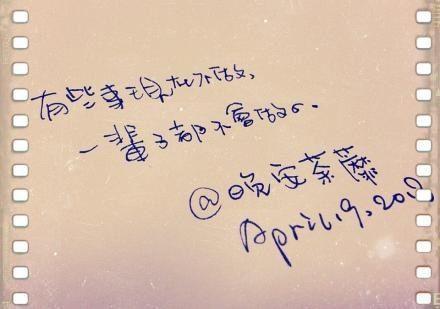 有些事現在不做、
一輩子都不會做了.
@晚安
April.19.